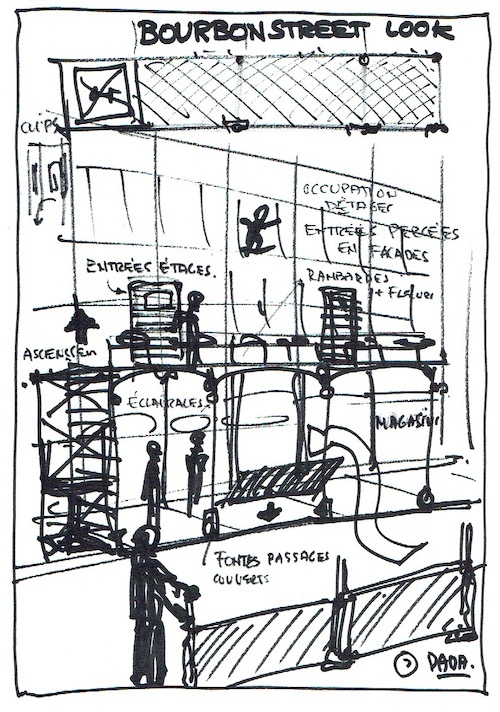 BOURBON STREET LOOK
CLIPS
OCCUPATION
D'ÉTAGES
ENTRÉES PERCÉES
EN FACADES
RAMBARDES
+ FLEURS
ENTRÉES ÉTAGES.
ASCENSSEUR
ÉCLAIRAGES
MAGASINS
FONTES PASSAGES
COUVERTS
DADA.